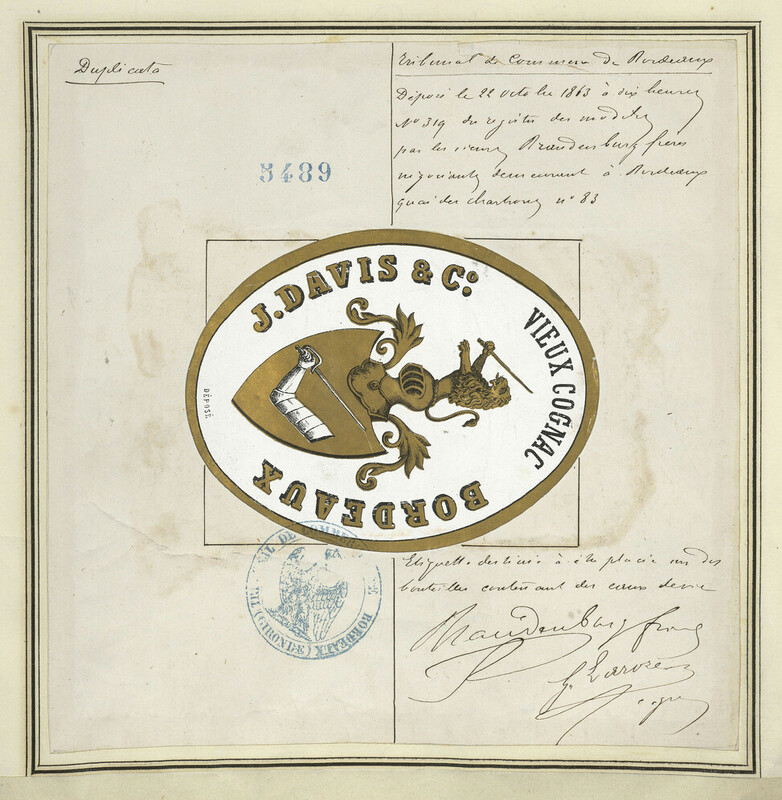 Duplicata
Tribunal de Commerce de Bordeaux
Déposé le 22 octobre 1863 à dix heures
No 319 du registre des modèles
par les sieurs Brandenburg frères
négociants demeurant à Bordeaux
quai des chartrons no 83
5489
J. DAVIS & Co.
VIEUX COGNAC
DÉPOSÉ.
BORDEAUX
Etiquette destinée à être placée sur des
bouteilles contenant des eaux de vie
Brandenburg frères
BORDEAUX (GIRONDE)